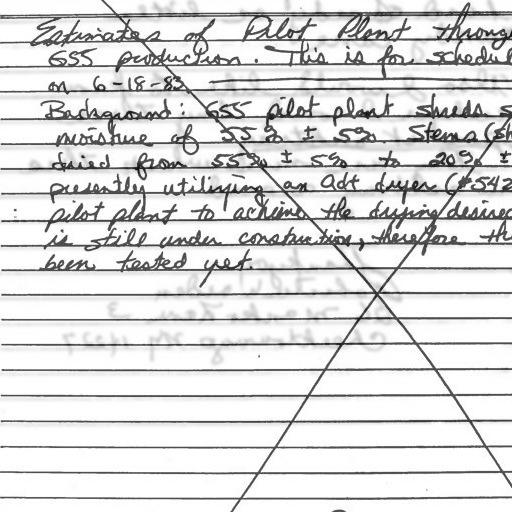 Estimates of Pilot Plant throug
G55 production. This is for schedul
on 6-18-83
Background: G55 pilot plant shreds s
moisture of 55% ± 5%. Stems (sh
dried from 55% ± 5% to 20% ±
presently utilizing an Adt dryer (#542
pilot plant to achieve the drying desired
is still under construction, therefore th
been tested yet.